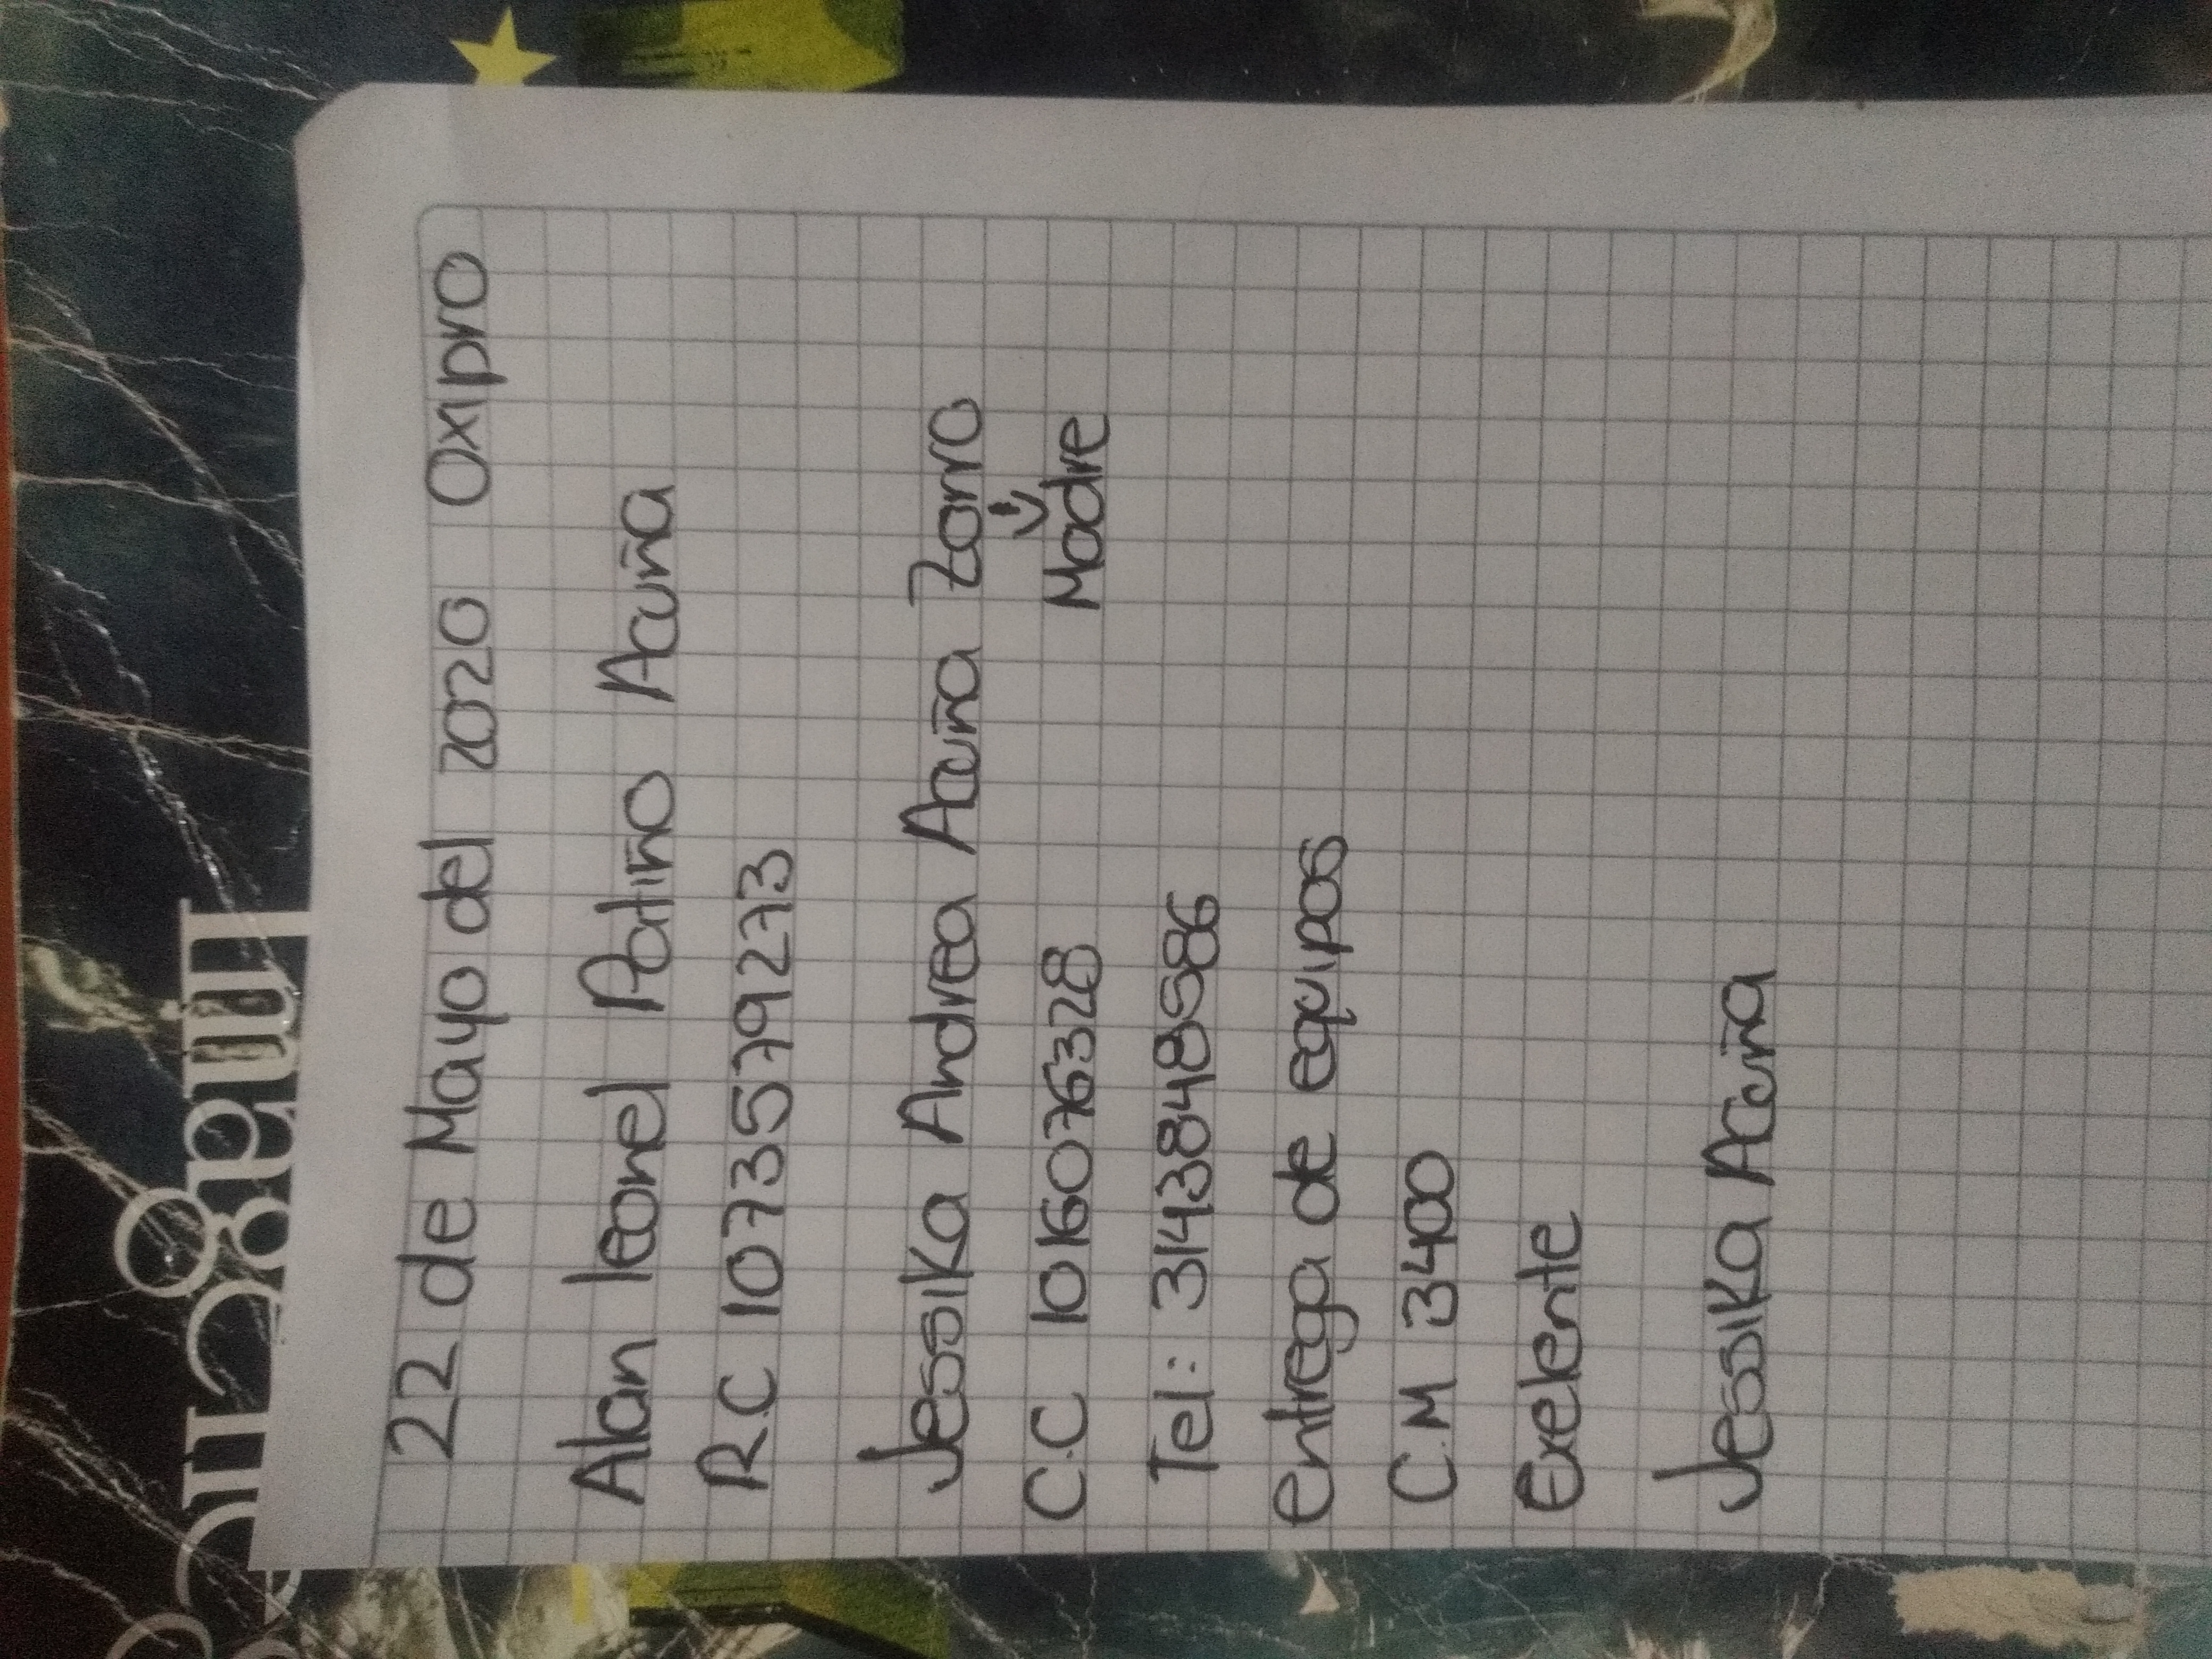 22 de Mayo del 2020 Oxipro
Alan leonel Patiño Acuña
R.C 1073579273
Jessika Andrea Acuña Zorro
Madre
C.C 1016076328
Tel: 3143848586
entrega de equipos
C.M 3400
Exelente
Jessika Acuña